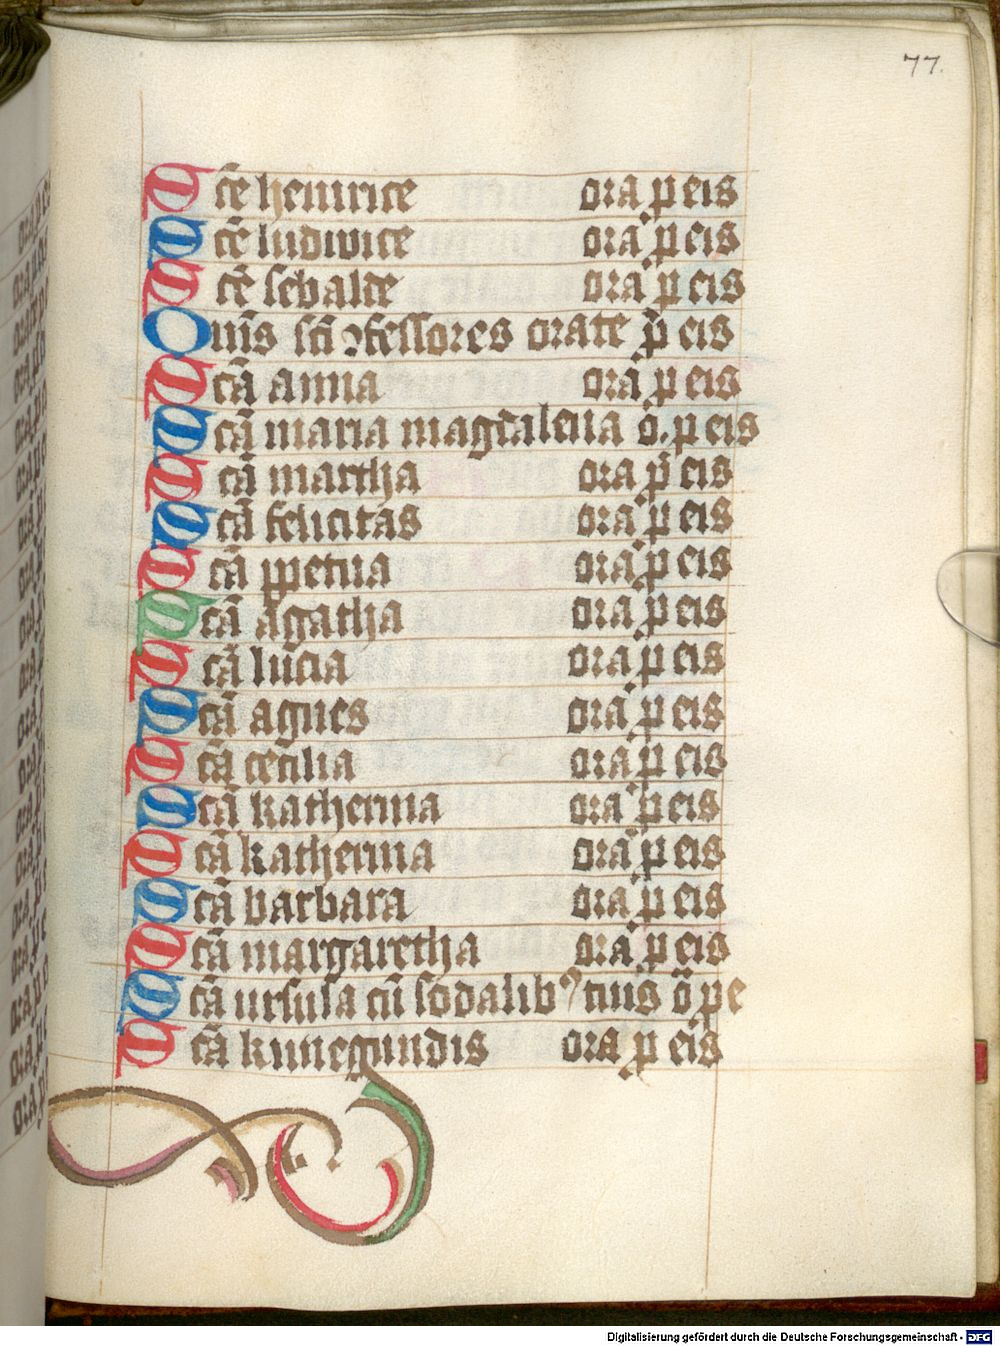 77.
Scē heinrice ora p eis
Scē ludwice ora p eis
Scē sebalde ora p eis
Om̄s scī ꝯfessores orate p eis
Scā anna ora p eis
Scā maria magdalena o. p eis
Scā martha ora p eis
Scā felicitas ora p eis
Scā ꝑpetua ora p eis
Scā agatha ora p eis
Scā lucia ora p eis
Scā agnes ora p eis
Scā cecilia ora p eis
Scā katherina ora p eis
Scā katherina ora p eis
Scā barbara ora p eis
Scā margaretha ora p eis
Scā ursula cū sodalibꝰ tuis o p e
Scā kunegundis ora p eis
Digitalisierung gefördert durch die Deutsche Forschungsgemeinschaft - DFG